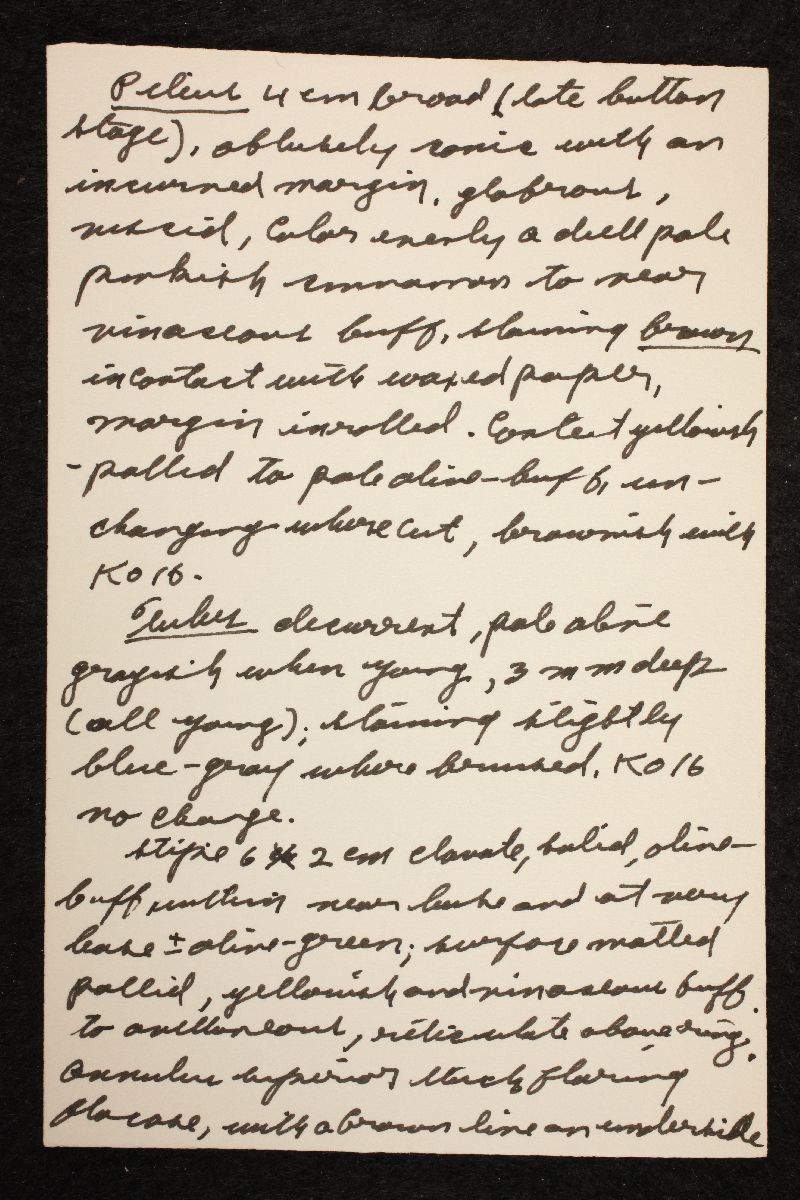 Pileus 4 cm broad (late button
stage), obtusely conic with an
incurved margin, glabrous,
viscid, Color evenly a dull pale
pinkish cinnamon to near
vinaceous buff, staining brown
in contact with waxed paper,
margin inrolled. Context yellowish
-pallid to pale olive-buff, un-
changing where cut, brownish with
KOH.
Tubes decurrent, pale olive
grayish when young, 3 mm deep
(all young); staining slightly
blue-gray where bruised. KOH
no change.
Stipe 6 x 2 cm clavate, solid, olive-
buff within near base and at very
base ± olive-green; surface matted
pallid, yellowish and vinaceous buff
to avellaneous, reticulate above ring.
annulus superior flaring
with a brown line on underside